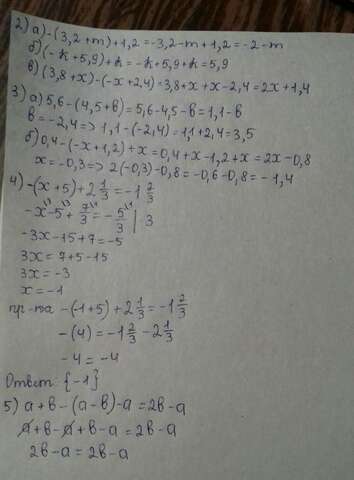 2) а) -(3,2+m)+1,2=-3,2-m+1,2=-2-m
б) (-k+5,9)+k=-k+5,9+k=5,9
в) (3,8+x)-(-x+2,4)=3,8+x+x-2,4=2x+1,4
3) а) 5,6-(4,5+b)=5,6-4,5-b=1,1-b
b=-2,4=>1,1-(-2,4)=1,1+2,4=3,5
б) 0,4-(-x+1,2)+x=0,4+x-1,2+x=2x-0,8
x=-0,3=>2(-0,3)-0,8=-0,6-0,8=-1,4
4) -(x+5)+2 1/3=-1 2/3
-x-5+7/3=-5/3 | ·3
-3x-15+7=-5
3x=7+5-15
3x=-3
x=-1
пр-ка -(-1+5)+2 1/3=-1 2/3
-(4)=-1 2/3-2 1/3
-4=-4
Ответ: {-1}
5) a+b-(a-b)-a=2b-a
a+b-a+b-a=2b-a
2b-a=2b-a